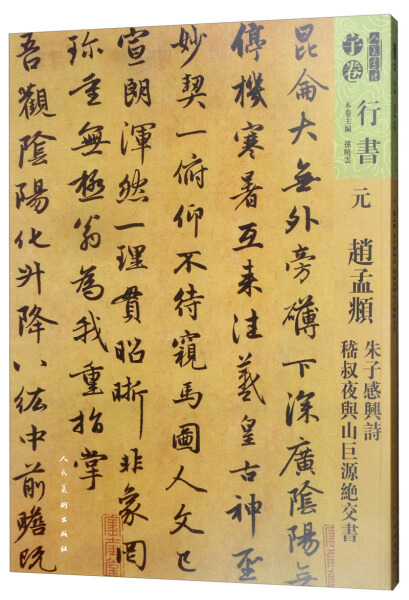 人美書譜
卷
行書
本卷主編 孫曉雲
元 趙孟頫
朱子感興詩
嵇叔夜與山巨源絶交書
昆侖大無外旁礴下深廣陰陽無
停機寒暑互来往羲皇古神聖
妙契一俯仰不待窺馬圖人文已
宣朗渾然一理貫昭晰非象罔
珎重無極翁為我重指掌
吾觀陰陽化升降八紘中前瞻既
人民美術出版社